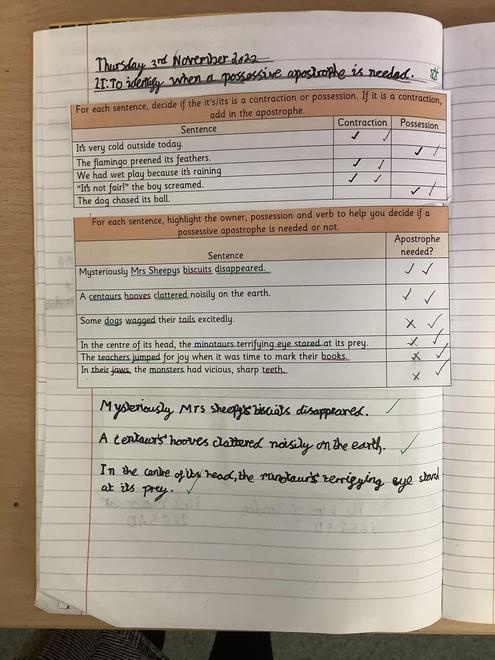 Thursday 3rd November 2022
LI: To identify when a possessive apostrophe is needed.
For each sentence, decide if the it's/its is a contraction or possession. If it is a contraction,
add in the apostrophe.
Sentence Contraction Possession
It's very cold outside today. ✓ ✓
The flamingo preened its feathers. ✓ ✓
We had wet play because it's raining ✓ ✓
"It's not fair!" the boy screamed. ✓ ✓
The dog chased its ball. ✓ ✓
For each sentence, highlight the owner, possession and verb to help you decide if a
possessive apostrophe is needed or not.
Sentence Apostrophe
needed?
Mysteriously Mrs Sheepys biscuits disappeared. ✓ ✓
A centaurs hooves clattered noisily on the earth. ✓ ✓
Some dogs wagged their tails excitedly. ✗ ✓
In the centre of its head, the minotaurs terrifying eye stared at its prey. ✓
The teachers jumped for joy when it was time to mark their books. ✗ ✓
In their jaws, the monsters had vicious, sharp teeth. ✗ ✓
Mysteriously Mrs sheepy's biscuits disappeared. ✓
A centaur's hooves clattered noisily on the earth. ✓
In the centre of its head, the terrifying eye stared
at its prey. ✓